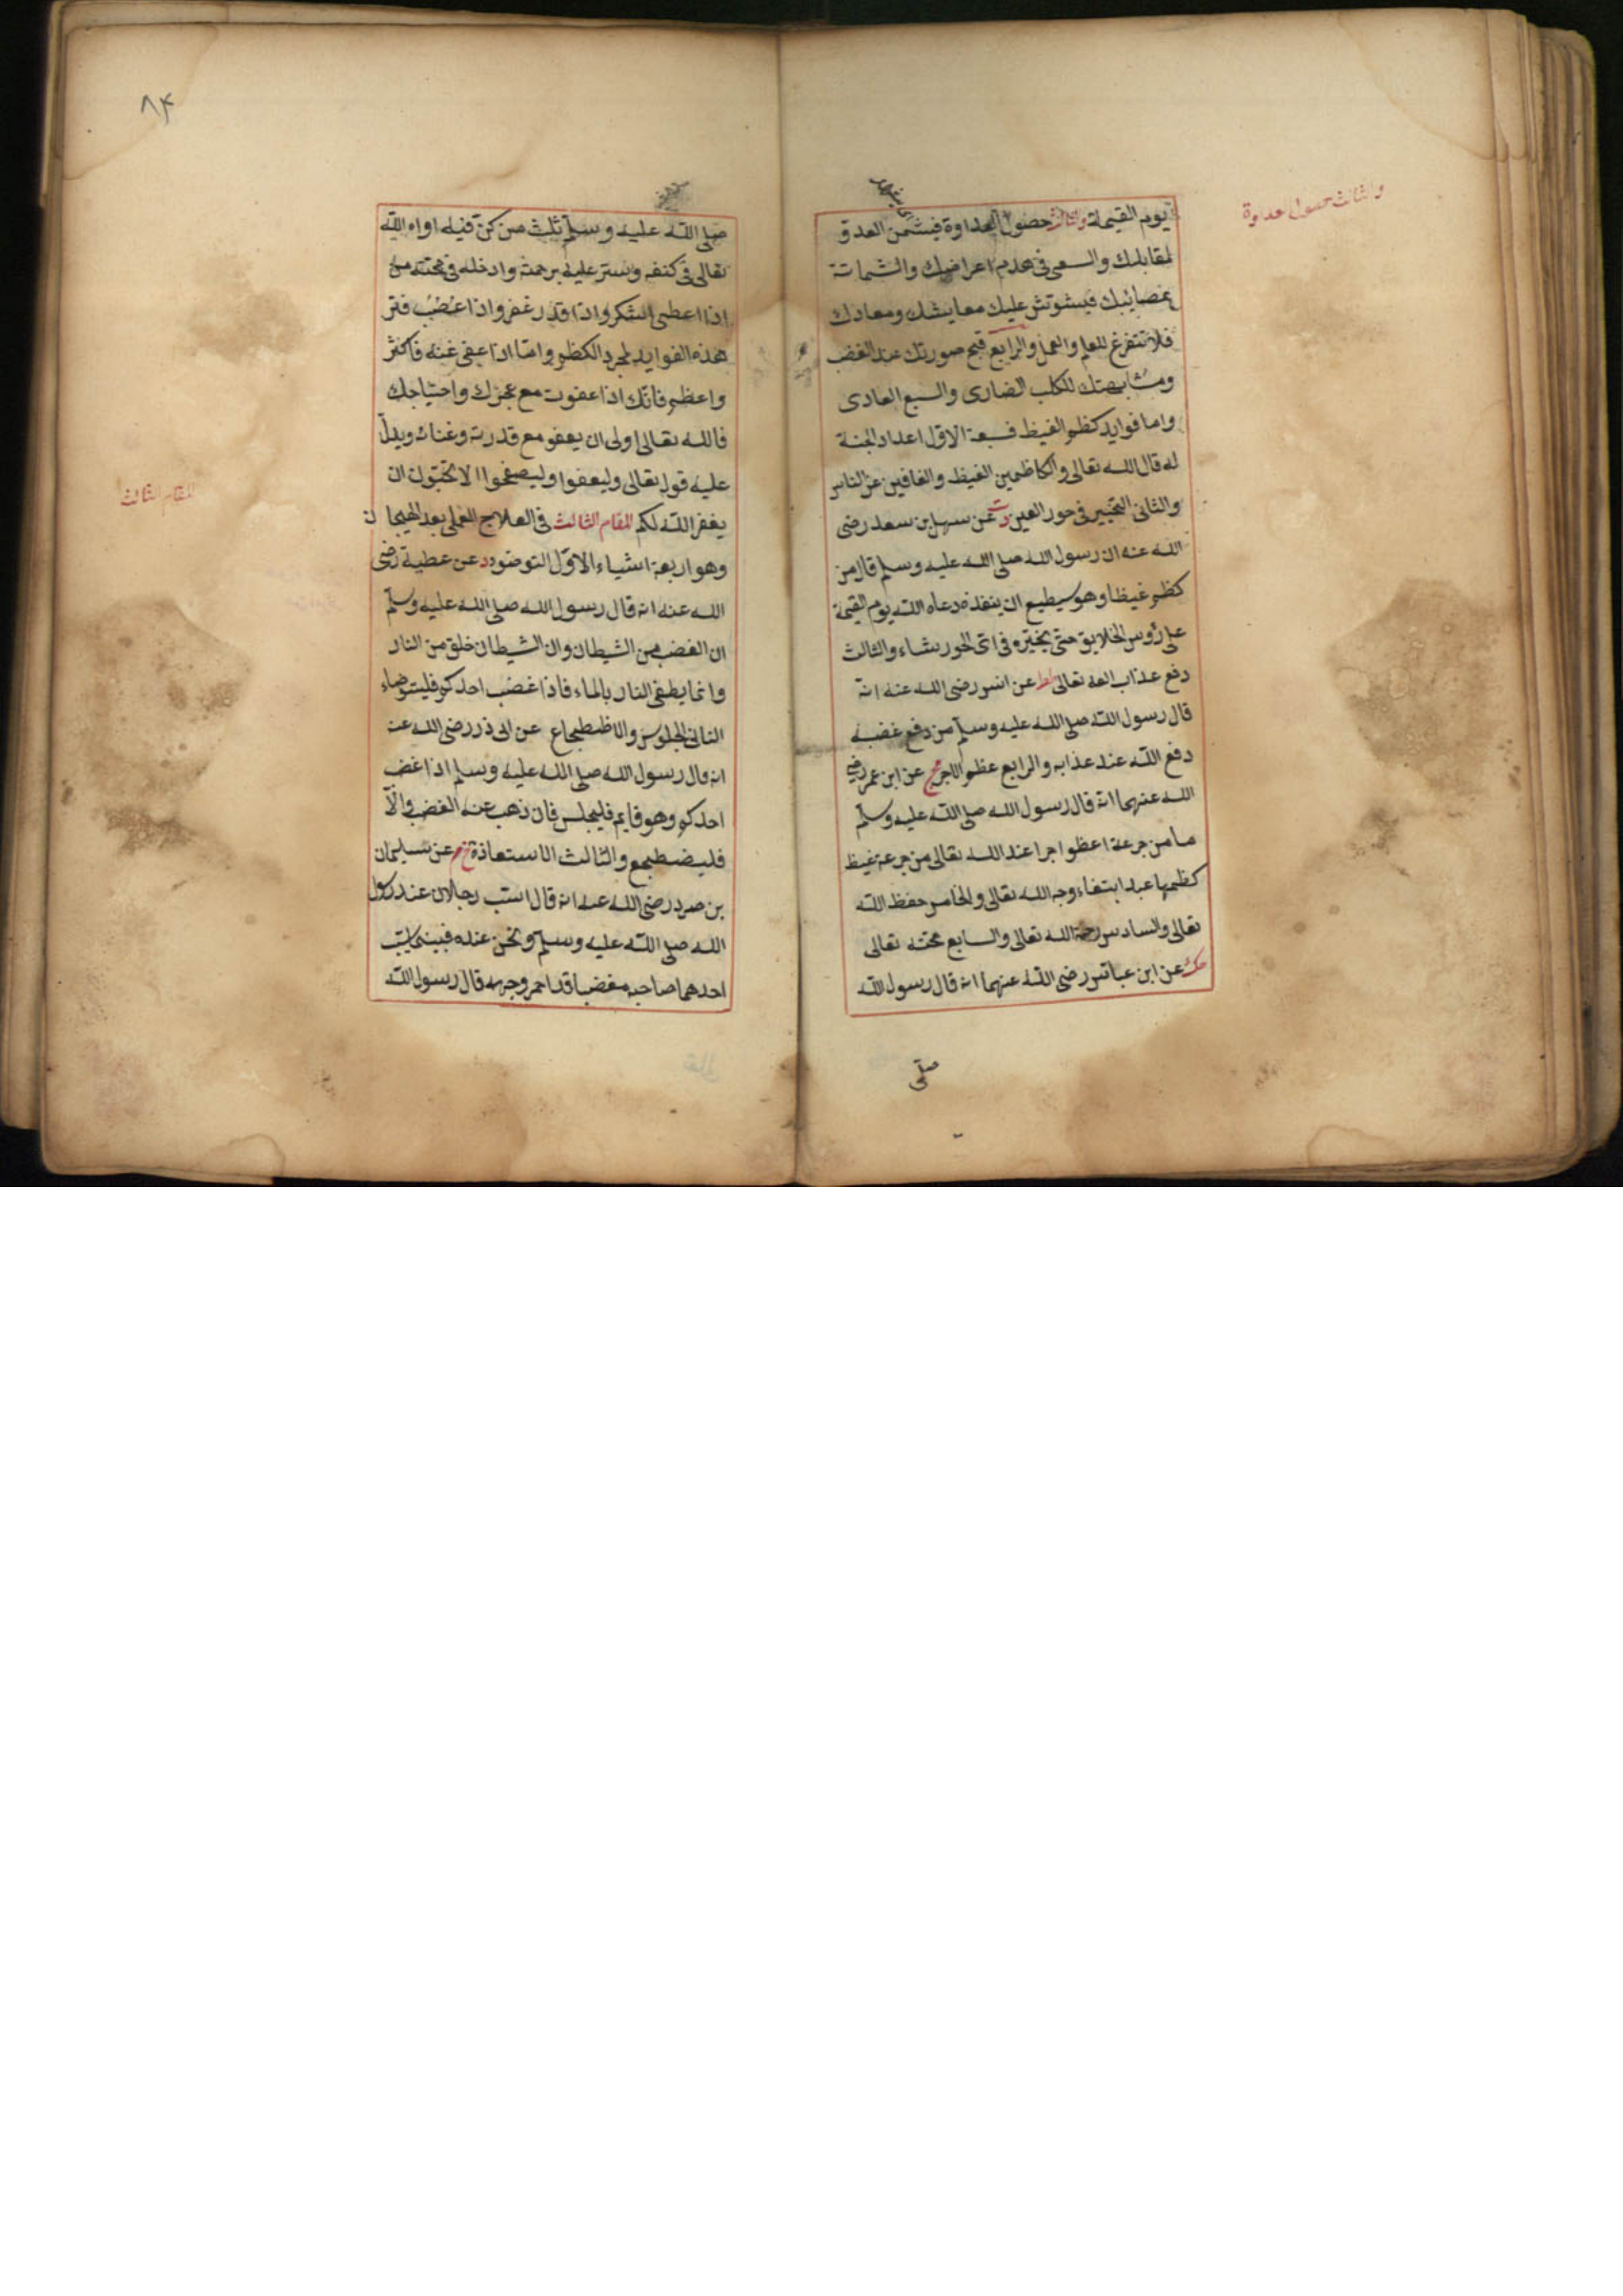 والثالث حصول عداوة
يوم القيمة والثالث حصول العداوة فيشمن العدو
لمقابلك والسعى فى هدم اعراضك والشماتة
بمصائبك فيشوتش عليك معايشك ومعادك
فلا تتفرغ للعلم والعمل والرابع قبح صورتك عند الغضب
ومشابهتك للكلب الضارى والسبع العادى
واما فوايد كظم الغيظ فسبعة الاول اعداد الجنة
له قال الله تعالى والكاظمين الغيظ والعافين عن الناس
والثانى التخيير فى حور العين دت عن سهل بن سعد رضى
الله عنه ان رسول الله صلى الله عليه وسلم قال من
كظم غيظا وهو يستطيع ان ينفذه دعاه الله يوم القيمة
على رؤس الخلايق حتى يخيره فى اى الحور شاء والثالث
دفع عذاب الله تعالى طط عن انس رضى الله عنه انه
قال رسول الله صلى الله عليه وسلم من دفع غضبه
دفع الله عند عذابه والرابع عظم الاجر مج عن ابن عمر رضى
الله عنهما انه قال رسول الله صلى الله عليه وسلم
ما من جرعة اعظم اجرا عند الله تعالى من جرعة غيظ
كظمها عبد ابتغاء وجه الله تعالى والخامس حفظ الله
تعالى والسادس رحمة الله تعالى والسابع محبته تعالى
حك عن ابن عباس رضى الله عنهما انه قال رسول الله
صلى
٨٤
صلى الله عليه وسلم ثلث من كن فيه اواه الله
تعالى فى كنفه وستر عليه برحمته وادخله فى محبته من
اذا اعطى الشكر واذا قدر غفر واذا اغضب فتر
هذه الفوايد لمجرد الكظم واما اذا عفى عنه فاكثر
واعظم فانك اذا عفوت مع عجزك واحتياجك
فالله تعالى اولى ان يعفو مع قدرته وغناه ويدل
عليه قوله تعالى وليعفوا وليصفحوا الا تحبون ان
يغفر الله لكم المقام الثالث فى العلاج العملى بعد الهيجان
وهو اربعة اشياء الاول التوضو د عن عطية رضى
الله عنه انه قال رسول الله صلى الله عليه وسلم
ان الغضب من الشيطان وان الشيطان خلق من النار
وانما يطفى النار بالماء فاذا غضب احدكم فليتوضاء
الثانى الجلوس والاضطجاع عن ابى ذر رضى الله عنه
انه قال رسول الله صلى الله عليه وسلم اذا غضب
احدكم وهو قايم فليجلس فان ذهب عنه الغضب والا
فليضطجع والثالث الاستعاذة خ م عن سليمان
بن صرد رضى الله عنه انه قال استب رجلان عند رسول
الله صلى الله عليه وسلم ونحن عنده فبينى يسب
احدهما صاحبه مغضبا قد احمر وجهه قال رسول الله
المقام الثالث